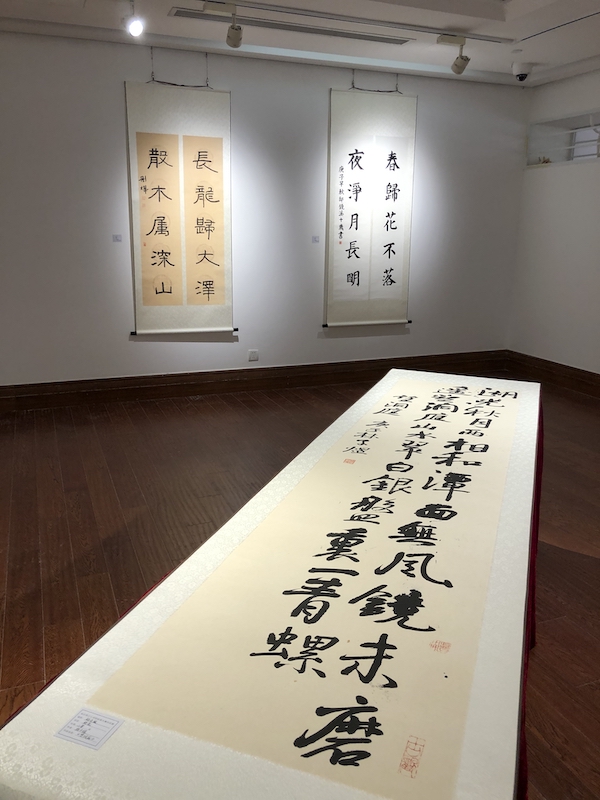 長龍歸大澤
散木属深山
春歸花不落
夜淨月長明
湖光秋月两相和潭面無風鏡未磨
遥望洞庭山水翠白銀盤裏一青螺
望洞庭